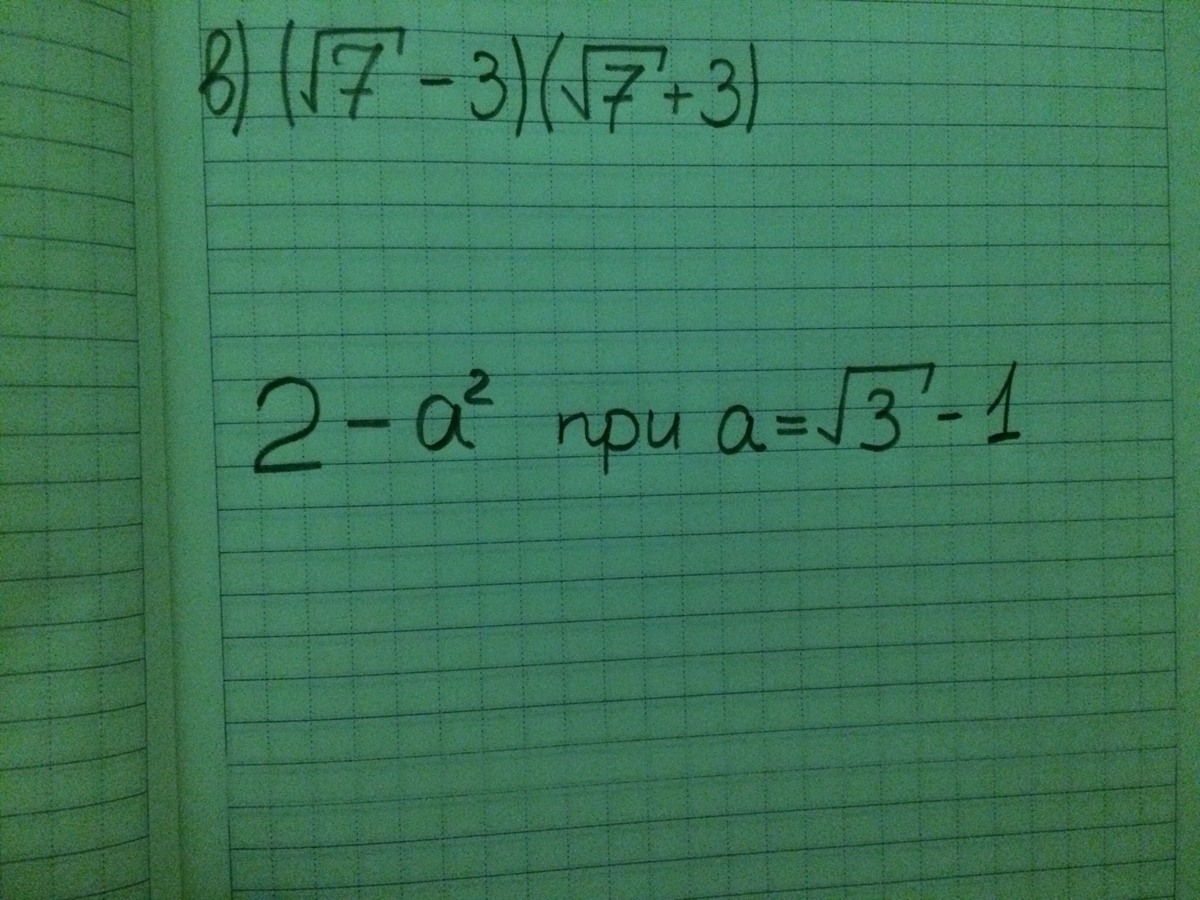 в) (√7 - 3)(√7 + 3)
2 - a² при a = √3 - 1